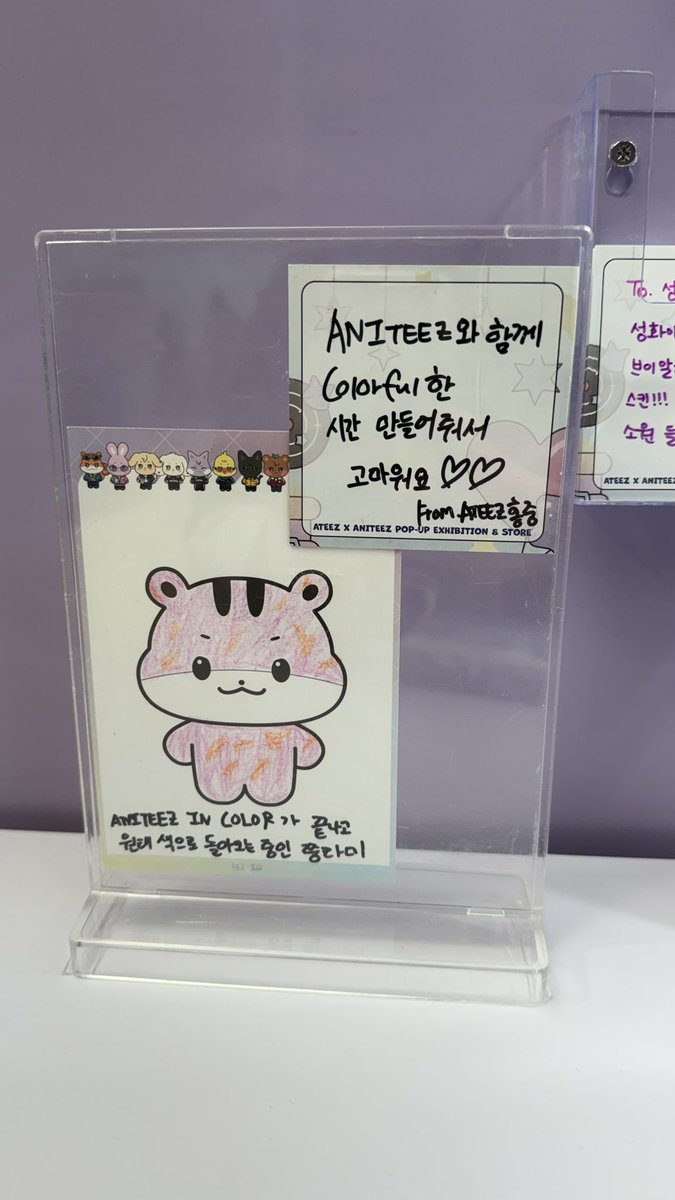 ANITEEZ와 함께
Colorful 한
시간 만들어줘서
고마워요 ♡♡
From. ATEEZ 홍중
ATEEZ X ANITEEZ POP-UP EXHIBITION & STORE
ANITEEZ IN COLOR가 끝나고
원래 색으로 돌아오는 중인 쫑다미
To. 성
성화야
브이알
스킨!!!
소원 들
ATEEZ X ANITEEZ